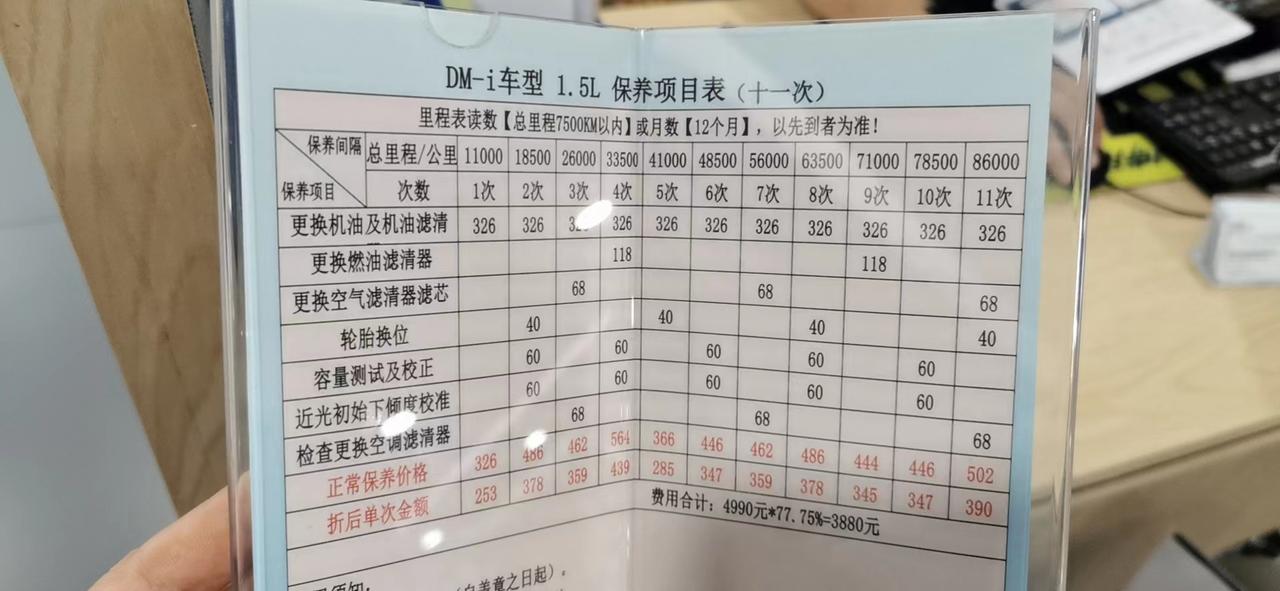 DM-i车型 1.5L 保养项目表(十一次)
里程表读数【总里程7500KM以内】或月数【12个月】，以先到者为准！
保养间隔 总里程/公里 11000 18500 26000 33500 41000 48500 56000 63500 71000 78500 86000
保养项目 次数 1次 2次 3次 4次 5次 6次 7次 8次 9次 10次 11次
更换机油及机油滤清 326 326 326 326 326 326 326 326 326 326
更换燃油滤清器 118 118
更换空气滤清器滤芯 68 68 68
轮胎换位 40 40 40 40
容量测试及校正 60 60 60 60 60
近光初始下倾度校准 60 60 60 60 60
检查更换空调滤清器 68 68 68
正常保养价格 326 486 462 564 366 446 462 486 444 446 502
折后单次金额 253 378 359 439 285 347 359 378 345 347 390
费用合计：4990元*77.75%=3880元
(自盖章之日起)。